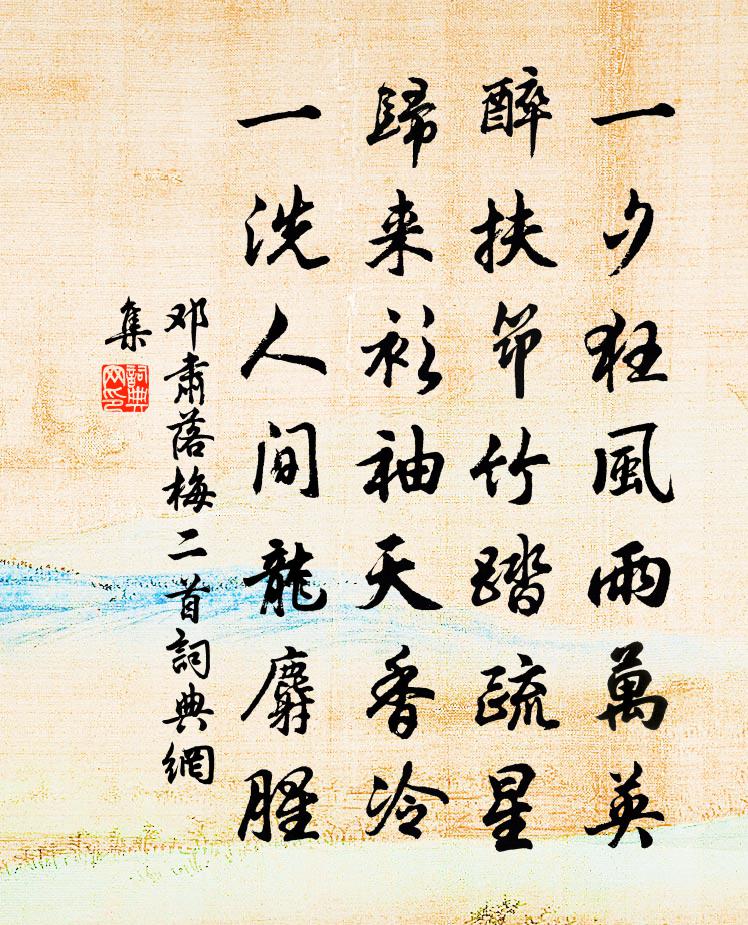 一夕狂風雨萬英
醉扶筇竹踏疏星
歸来衫袖天香冷
一洗人间龍麝腥
邓肅落梅二首詞典網
集
詞典網印